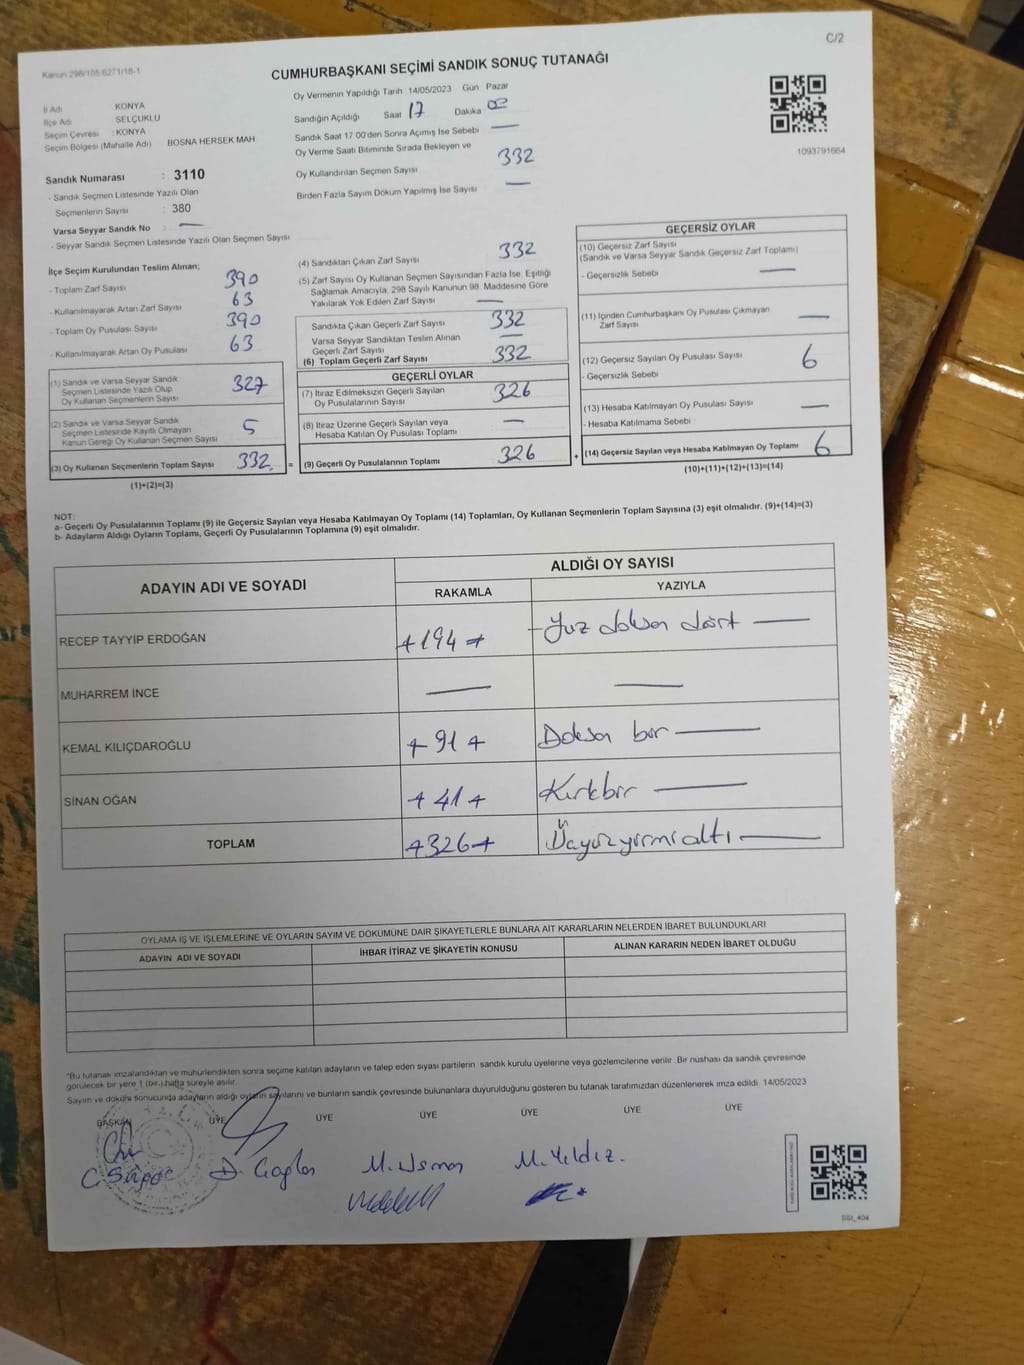 C/2
Kanun 298/105 6271/18-1
CUMHURBAŞKANI SEÇİMİ SANDIK SONUÇ TUTANAĞI
İl Adı KONYA
İlçe Adı SELÇUKLU
Seçim Çevresi : KONYA
Seçim Bölgesi (Mahalle Adı) BOSNA HERSEK MAH
Sandık Numarası : 3110
- Sandık Seçmen Listesinde Yazılı Olan
Seçmenlerin Sayısı : 380
Varsa Seyyar Sandık No : —
- Seyyar Sandık Seçmen Listesinde Yazılı Olan Seçmen Sayısı
Oy Vermenin Yapıldığı Tarih 14/05/2023 Gün Pazar
Sandığın Açıldığı Saat 17 Dakika 02
Sandık Saat 17 00'den Sonra Açımış İse Sebebi —
Oy Verme Saati Bitiminde Sırada Bekleyen ve
Oy Kullandırılan Seçmen Sayısı 332
Birden Fazla Sayım Döküm Yapılmış İse Sayısı —
1093791664
İlçe Seçim Kurulundan Teslim Alınan;
- Toplam Zarf Sayısı 390
- Kullanılmayarak Artan Zarf Sayısı 63
- Toplam Oy Pusulası Sayısı 390
- Kullanılmayarak Artan Oy Pusulası 63
(1) Sandık ve Varsa Seyyar Sandık
Seçmen Listesinde Yazılı Olup
Oy Kullanan Seçmenlerin Sayısı 327
(2) Sandık ve Varsa Seyyar Sandık
Seçmen Listesinde Kayıtlı Olmayan
Kanun Gereği Oy Kullanan Seçmen Sayısı 5
(3) Oy Kullanan Seçmenlerin Toplam Sayısı 332 =
(1)+(2)=(3)
(4) Sandıktan Çıkan Zarf Sayısı 332
(5) Zarf Sayısı Oy Kullanan Seçmen Sayısından Fazla İse, Eşitliği
Sağlamak Amacıyla, 298 Sayılı Kanunun 98. Maddesine Göre
Yakılarak Yok Edilen Zarf Sayısı —
Sandıkta Çıkan Geçerli Zarf Sayısı 332
Varsa Seyyar Sandıktan Teslim Alınan
Geçerli Zarf Sayısı —
(6) Toplam Geçerli Zarf Sayısı 332
GEÇERLİ OYLAR
(7) İtiraz Edilmeksizin Geçerli Sayılan
Oy Pusulalarının Sayısı 326
(8) İtiraz Üzerine Geçerli Sayılan veya
Hesaba Katılan Oy Pusulası Toplamı —
(9) Geçerli Oy Pusulalarının Toplamı 326 +
GEÇERSİZ OYLAR
(10) Geçersiz Zarf Sayısı
(Sandık ve Varsa Seyyar Sandık Geçersiz Zarf Toplamı)
- Geçersizlik Sebebi —
(11) İçinden Cumhurbaşkanı Oy Pusulası Çıkmayan
Zarf Sayısı —
(12) Geçersiz Sayılan Oy Pusulası Sayısı 6
- Geçersizlik Sebebi
(13) Hesaba Katılmayan Oy Pusulası Sayısı —
- Hesaba Katılmama Sebebi
(14) Geçersiz Sayılan veya Hesaba Katılmayan Oy Toplamı 6
(10)+(11)+(12)+(13)=(14)
NOT:
a- Geçerli Oy Pusulalarının Toplamı (9) ile Geçersiz Sayılan veya Hesaba Katılmayan Oy Toplamı (14) Toplamları, Oy Kullanan Seçmenlerin Toplam Sayısına (3) eşit olmalıdır. (9)+(14)=(3)
b- Adayların Aldığı Oyların Toplamı, Geçerli Oy Pusulalarının Toplamına (9) eşit olmalıdır.
ADAYIN ADI VE SOYADI ALDIĞI OY SAYISI
RAKAMLA YAZIYLA
RECEP TAYYİP ERDOĞAN +194+ -Yüz doksan dört —
MUHARREM İNCE — —
KEMAL KILIÇDAROĞLU +91+ Doksan bir —
SİNAN OĞAN +41+ Kırkbir —
TOPLAM +326+ Üçyüzyirmialtı —
OYLAMA İŞ VE İŞLEMLERİNE VE OYLARIN SAYIM VE DÖKÜMÜNE DAİR ŞİKAYETLERLE BUNLARA AİT KARARLARIN NELERDEN İBARET BULUNDUKLARI
ADAYIN ADI VE SOYADI İHBAR İTİRAZ VE ŞİKAYETİN KONUSU ALINAN KARARIN NEDEN İBARET OLDUĞU
*Bu tutanak imzalandıktan ve mühürlendikten sonra seçime katılan adayların ve talep eden siyasi partilerin sandık kurulu üyelerine veya gözlemcilerine verilir. Bir nüshası da sandık çevresinde
görülecek bir yere 1 (bir) hafta süreyle asılır.
Sayım ve dökümü sonucunda adayların aldığı oyların sayılarını ve bunların sandık çevresinde bulunanlara duyurulduğunu gösteren bu tutanak tarafımızdan düzenlenerek imza edildi. 14/05/2023
BAŞKAN ÜYE ÜYE ÜYE ÜYE ÜYE ÜYE
D. Çağlar M. Usman M. Yıldız.
SSI_404